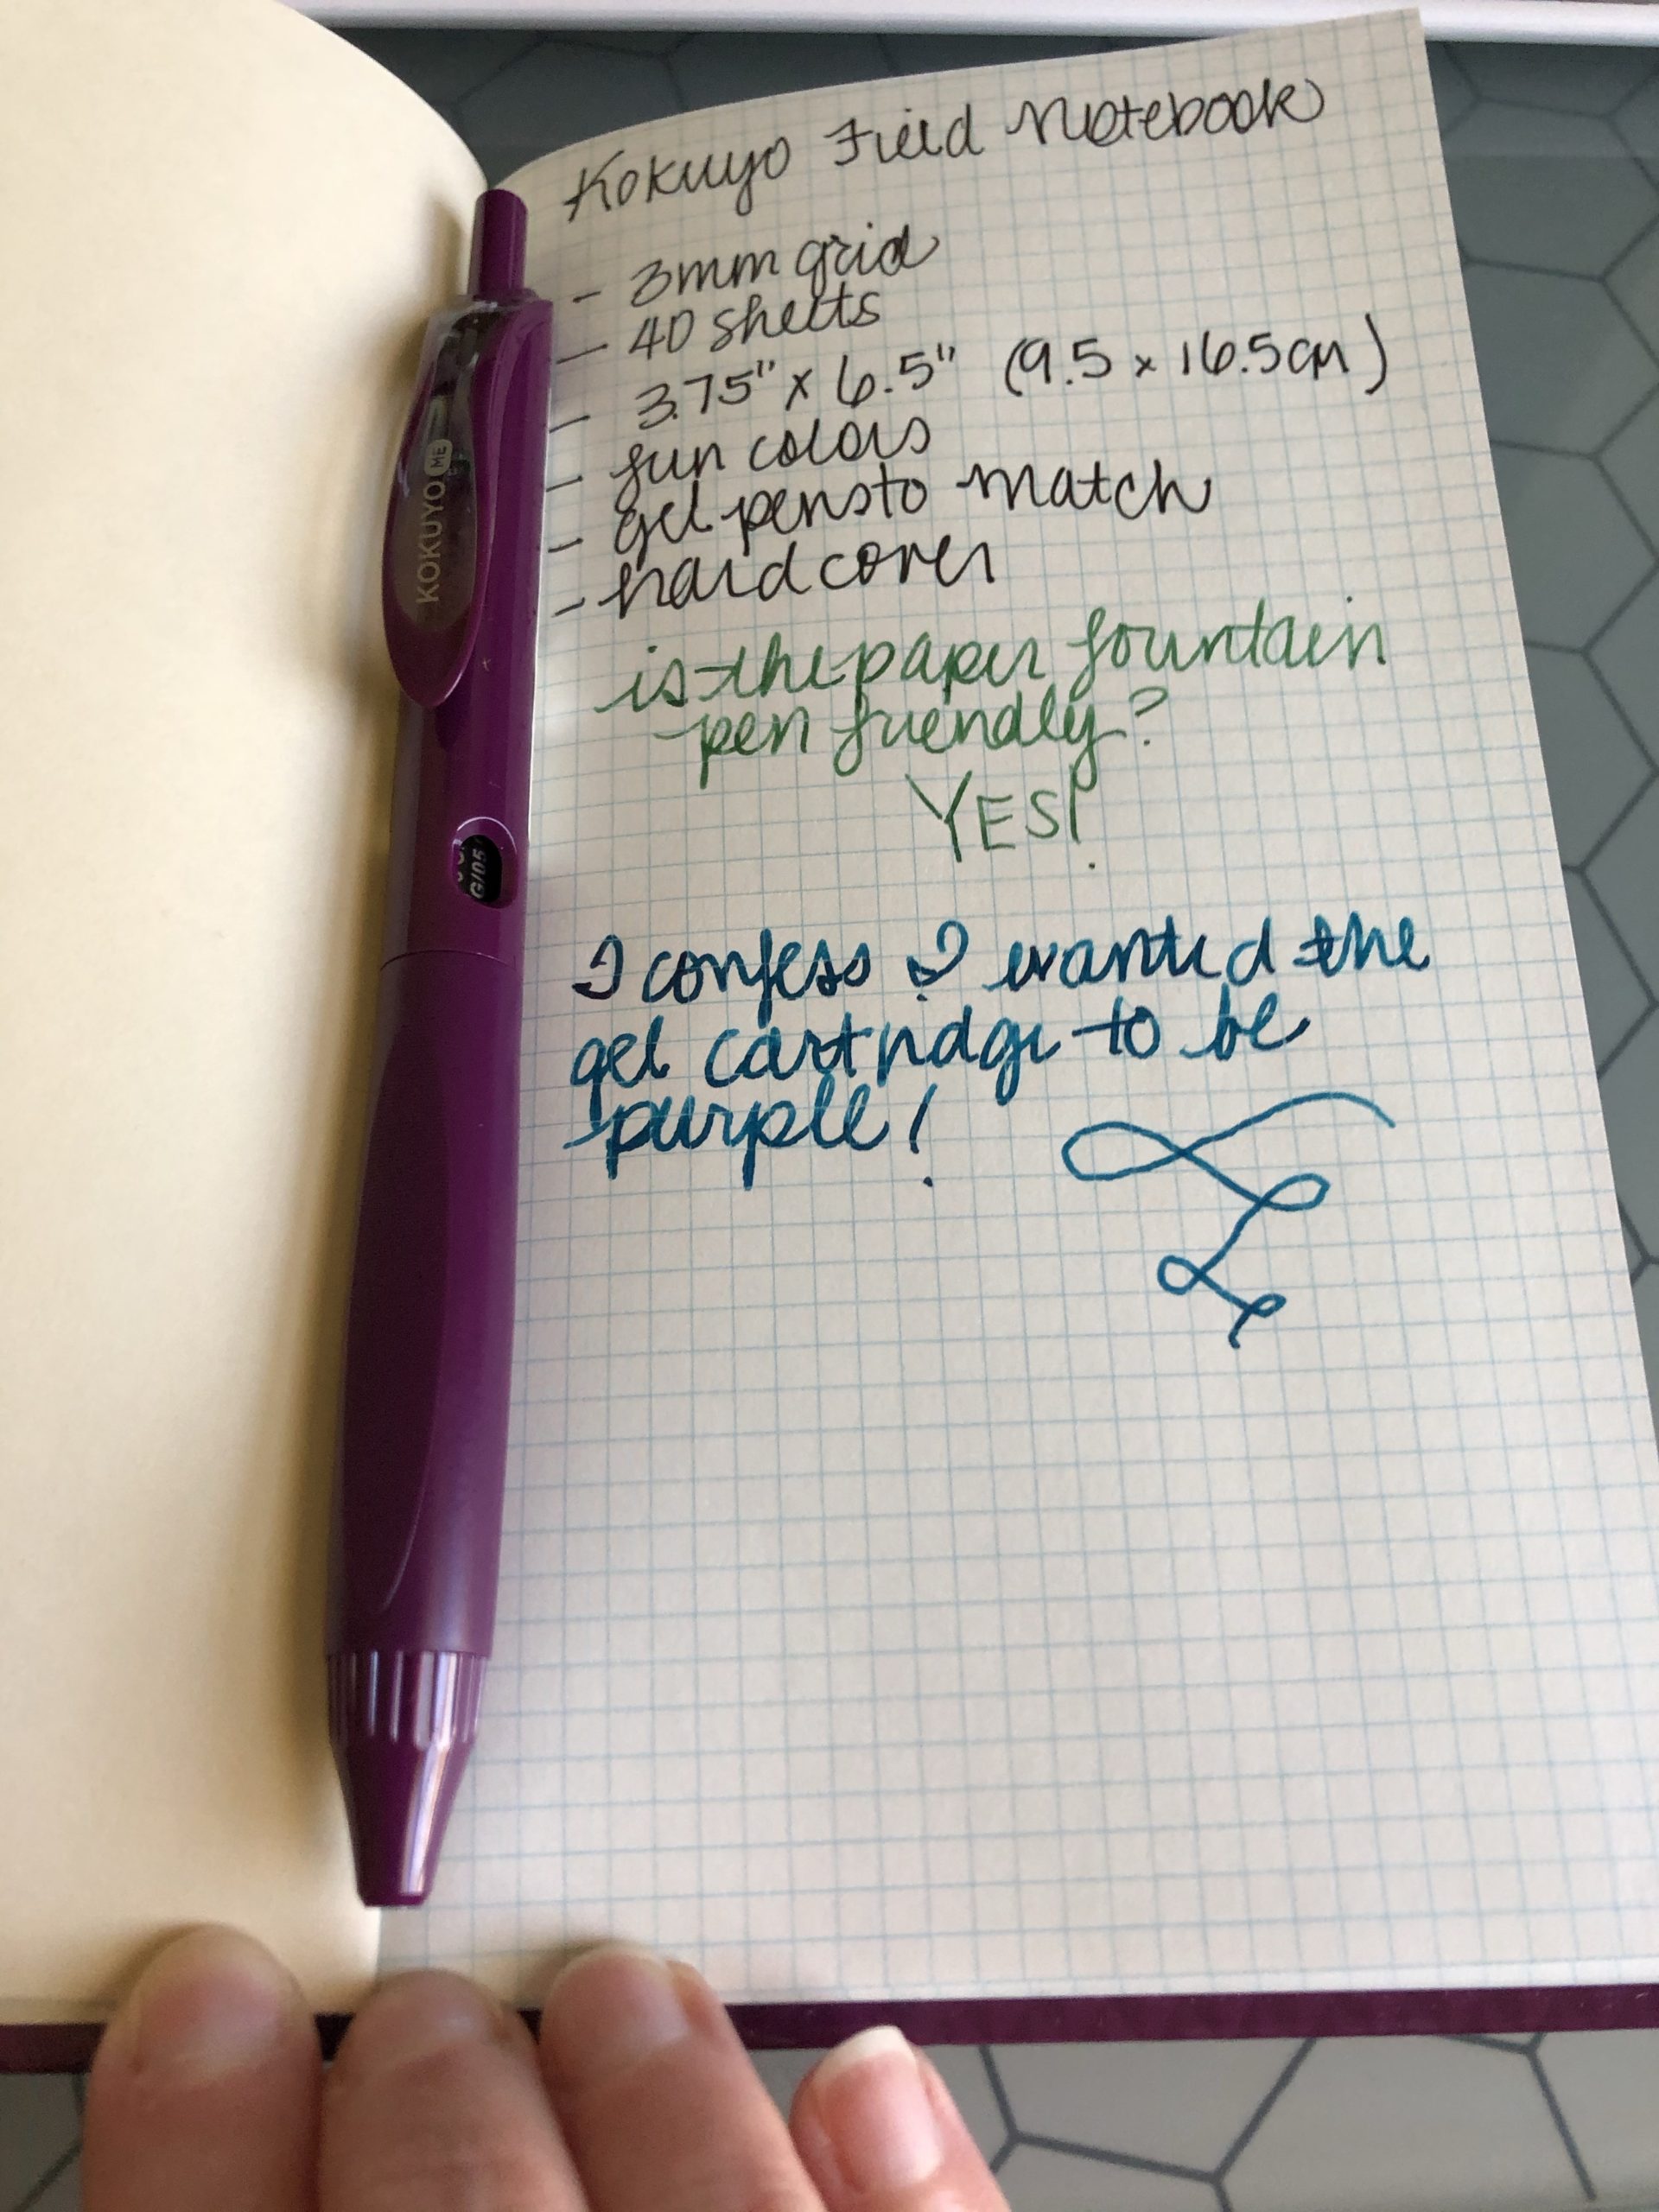 Kokuyo Field Notebook
- 3mm grid
- 40 sheets
- 3.75" x 6.5" (9.5 x 16.5cm)
- fun colors
- gel pens to match
- hard cover
is the paper fountain
pen friendly?
YES!
I confess I wanted the
gel cartridge to be
purple!
KOKUYO ME
G/05